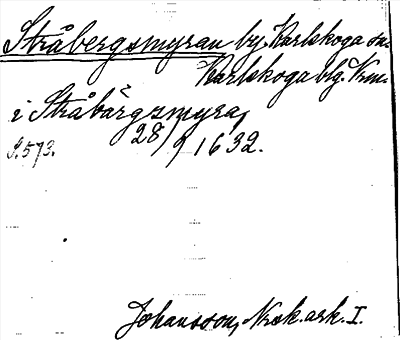 Stråbergsmyran by, Karlskoga sn.
Karlskoga blg. Vrm.
i Stråbärgzmyra,
28/9 1632.
S. 573.
Johansson, Norsk. ark. I.